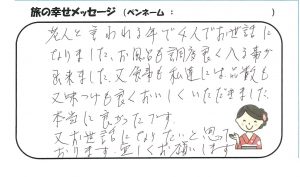 旅の幸せメッセージ（ペンネーム：　　　　　　）
老人と言われる年で4人でお世話に
なりました。お風呂も調度良く入る事が
出来ました。又食事も私達には品数も
又味つけも良くおいしくいただきました。
本当に良かったです。
又お世話になりたいと思って
おります。宜しくお願いします